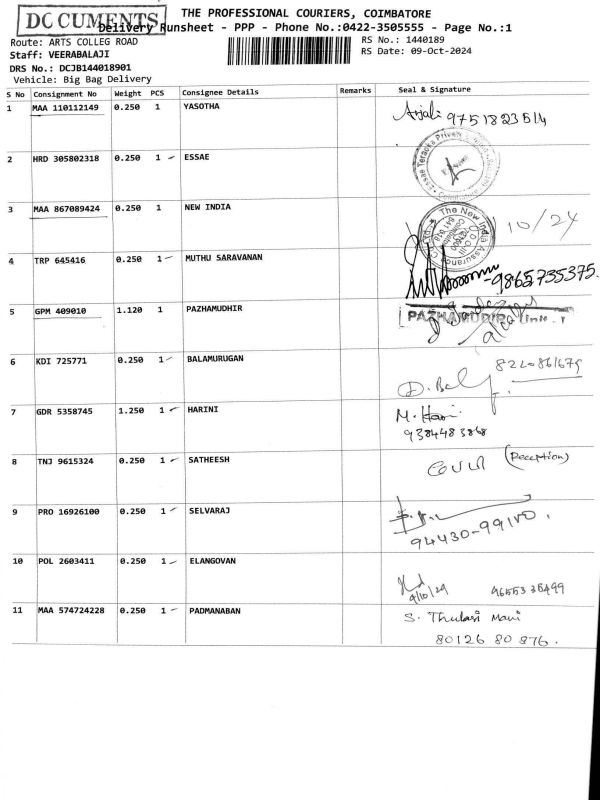 DOCUMENTS
THE PROFESSIONAL COURIERS, COIMBATORE
Delivery Runsheet - PPP - Phone No.:0422-3505555 - Page No.:1
Route: ARTS COLLEG ROAD
RS No.: 1440189
Staff: VEERABALAJI
RS Date: 09-Oct-2024
DRS No.: DCJB144018901
Vehicle: Big Bag Delivery
S No Consignment No Weight PCS Consignee Details Remarks Seal & Signature
1 MAA 110112149 0.250 1 YASOTHA Anjali 9751823514
2 HRD 305802318 0.250 1 ESSAE
3 MAA 867089424 0.250 1 NEW INDIA The New India Assurance 10/24
4 TRP 645416 0.250 1 MUTHU SARAVANAN 9865735375
5 GPM 409010 1.120 1 PAZHAMUDHIR PAZHAMUDIR
6 KDI 725771 0.250 1 BALAMURUGAN 8220861679
D. Bal
7 GDR 5358745 1.250 1 HARINI M. Hari
9384483868
8 TNJ 9615324 0.250 1 SATHEESH (Reception)
9 PRO 16926100 0.250 1 SELVARAJ
94430-99140.
10 POL 2603411 0.250 1 ELANGOVAN
9/10/24 9655335499
11 MAA 574724228 0.250 1 PADMANABAN S. Thulasi Mani
80126 80 876.